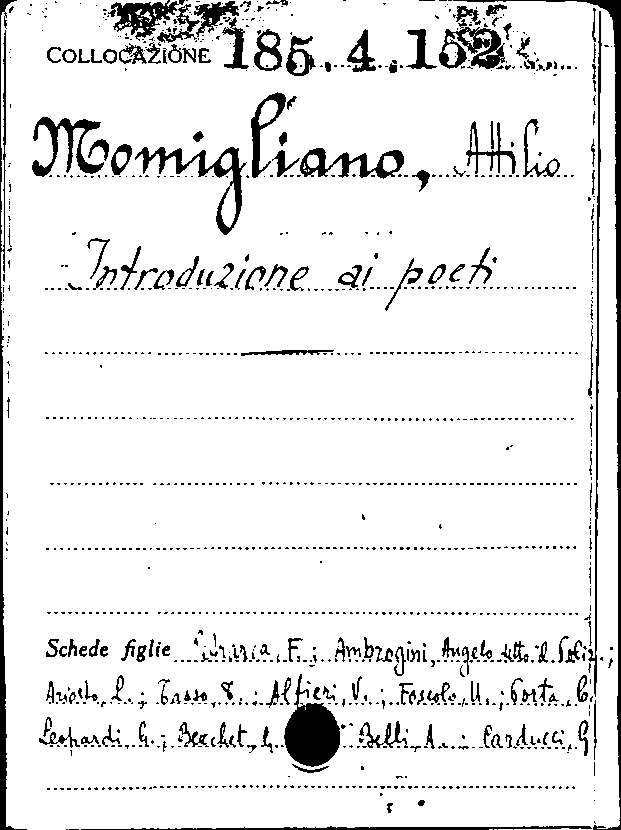 COLLOCAZIONE 185.4.152
Momigliano, Attilio
Introduzione ai poeti
Schede figlie F.; Ambrogini, Angelo detto il Poliz.;
Ariosto, L.; Tasso, T.; Alfieri, V.; Foscolo, U.; Porta, C.
Leopardi G.; Berchet, G. Belli, A.; Carducci, G.